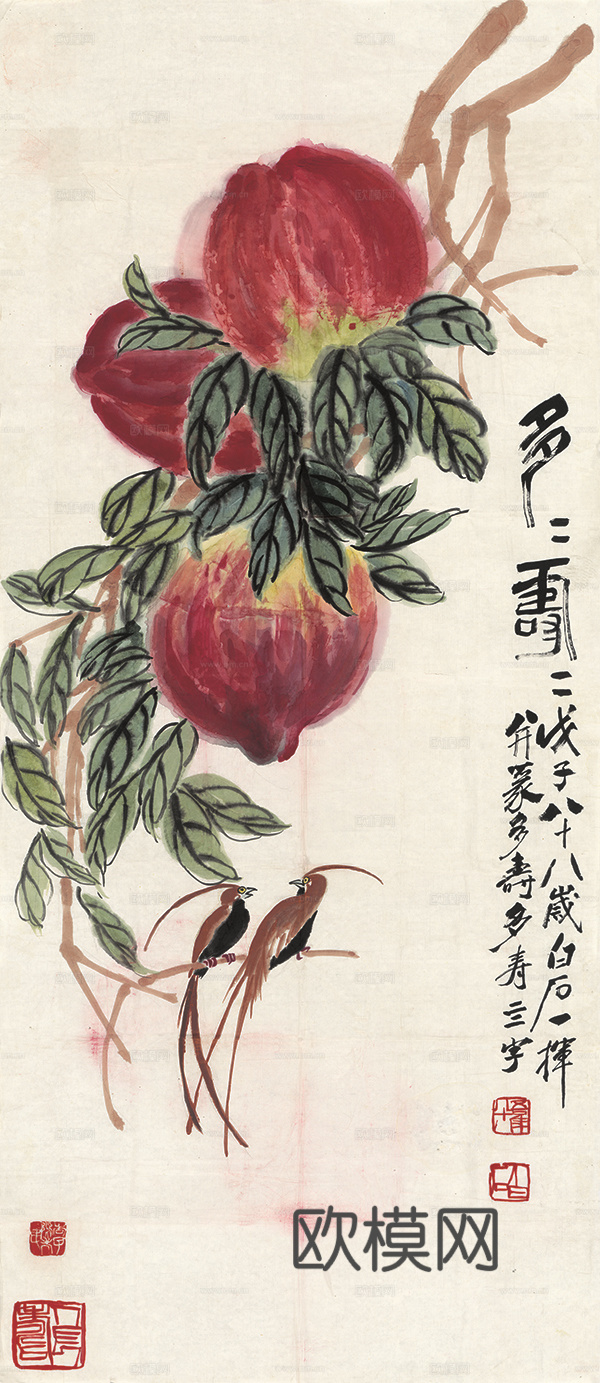 多二壽二
戊子八十八歲白石一揮
并篆多壽多寿亖字
欧模网